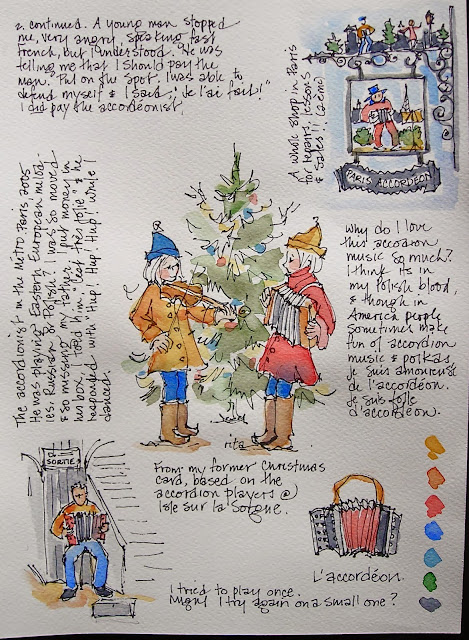 2. continued. A young man stopped
me, very angry, speaking fast
French, but I understood. He was
telling me that I should pay the
man. Put on the spot, I was able to
defend myself & I said, "Je l'ai fait!"
I did pay the accordéonist.
A whole shop in Paris
for repairs, lessons
& sales!!
PARIS ACCORDÉON
The accordionist in the Métro Paris 2005
He was playing Eastern European melod-
ies. Russian or Polish? I was so moved
& so missing my father. I put money in
his box. I told him, "c'est très jolie" & he
responded with "Hup! Hup! Hup!" while I
danced.
Why do I love
this accordion
music so much?
I think its in
my Polish blood,
& though in
America people
sometimes make
fun of accordion
music & polkas,
je suis amoureuse
de l'accordéon.
Je suis folle
d'accordéon.
rita
SORTIE
From my former Christmas
card, based on the
accordion players @
Isle sur la Sorgue.
L'accordéon.
I tried to play once.
Might I try again on a small one?